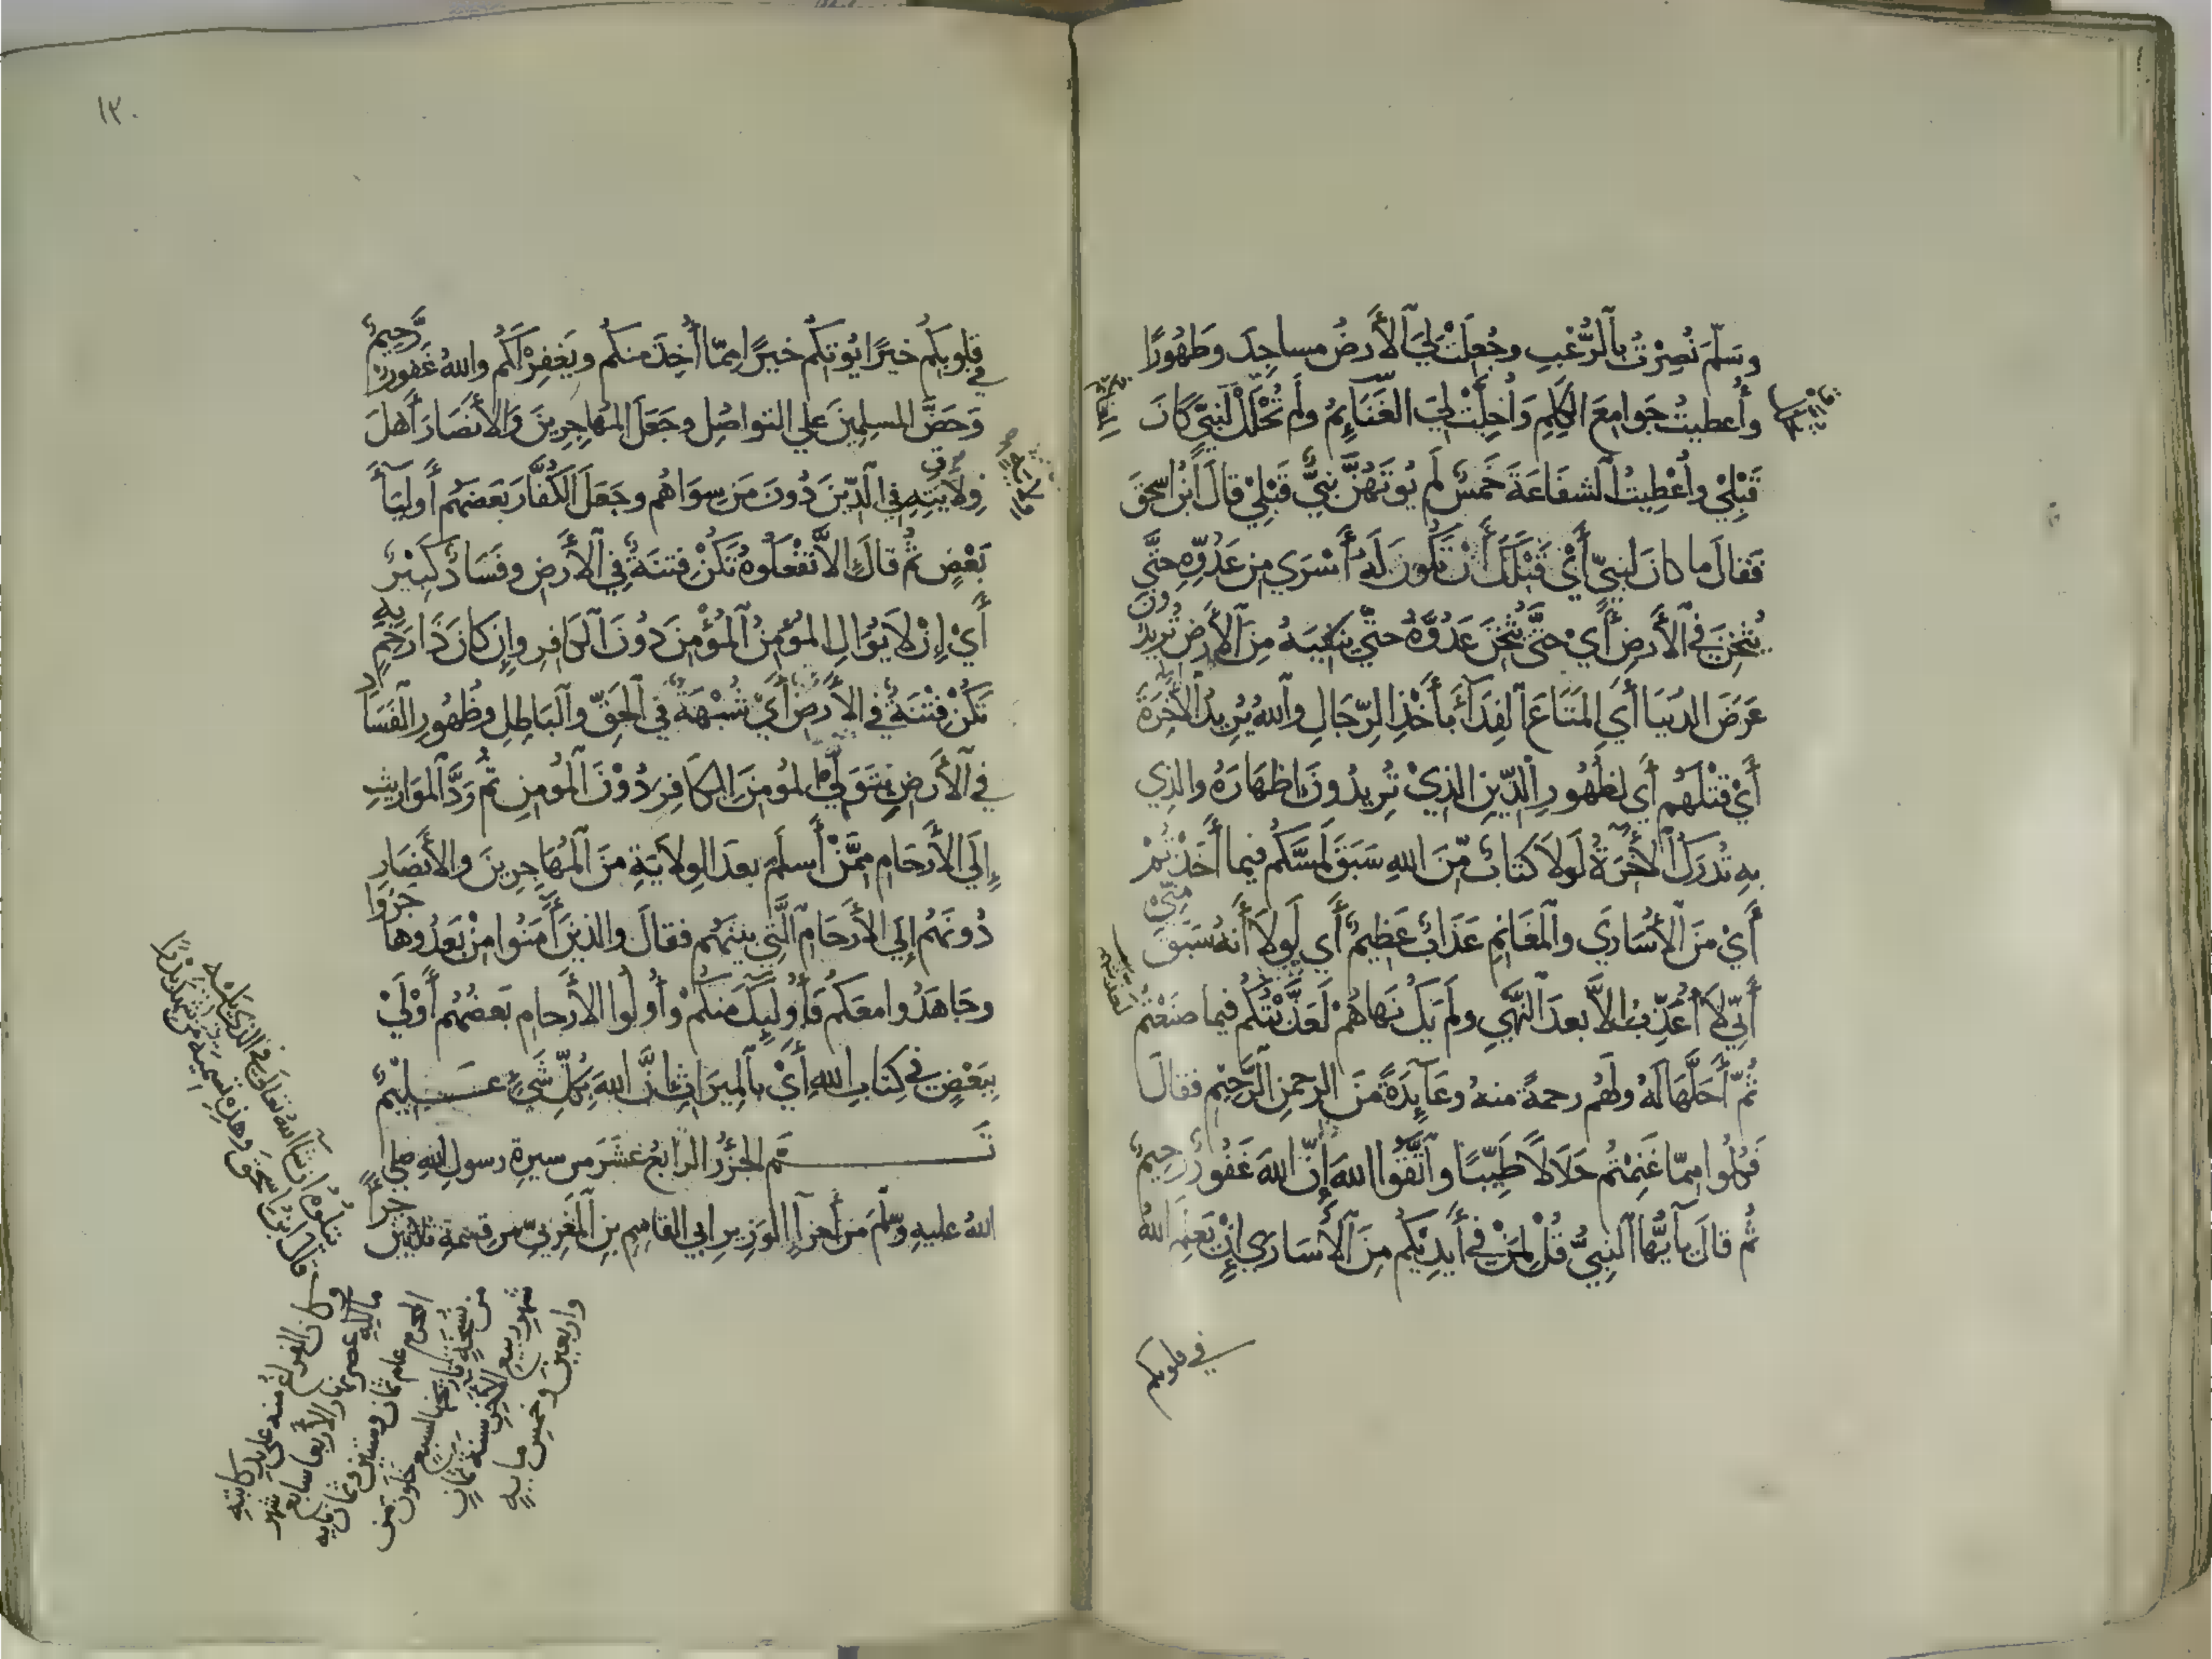 وسَلَّمَ نُصِرْتُ بِالرُّعْبِ وجُعِلَتْ لِيَ الأَرضُ مساجِدَ وطَهُورًا
وأُعطيتُ جَوامِعَ الكَلِمِ وَأُحِلَّتْ لِيَ الغَنَائِمُ ولَم تُحْلَلْ لنَبِيٍّ كَانَ
قَبْلِيْ وأُعْطِيتُ الشفَاعَةَ خَمسٌ لَم يُوتَهُنَّ نَبِيٌّ قَبْلِيْ قالَ ابْنُ اسحقَ
فَقالَ ما كانَ لِنَبِيٍّ أَيْ قَبْلَكَ أَنْ تَكُونَ لَهُ أَسْرَي مِن عَدُوِّهِ حتَّي
يُثْخِنَ في الأَرضِ أَيْ حتَّي يُثْخِنَ عَدُوَّهُ حتَّي يَنفِيَهُ مِنَ الأَرضِ تُرِيدُون
عَرَضَ الدُنيَا أَيِ المَتَاعَ الفِدَآءَ بأَخْذِ الرِّجَالِ واللهُ يُرِيدُ الآخِرَةَ
أَيْ قَتْلَهُم أَي لظُهُورِ الدِّينِ الذِيْ تُرِيدُونَ إِظهَارَهُ والذِي
بِهِ تُدْرَكُ الآخِرَةُ لَولاَ كتابٌ مِّنَ اللهِ سَبَقَ لَمسَّكُم فيما أَخَذْتُمْ
أَيْ مِنَ الأُسَارَي والمَغَانِمِ عَذَابٌ عَظِيمٌ أَي لَولاَ أَنهُ سَبَقَ مِنِّي
أَنِّي لاَ أُعَذِّبُ إلاَّ بعدَ النَّهْيِ ولَم يَكُ نَهاهُمْ لَعَذَّبْتُكُم فيما صَنَعْتُم
ثُمَّ أَحَلَّهَا لَهُ ولَهُم رحمةً منهُ وعَآئِدَةً مِنَ الرحمنِ الرَّحِيمِ فقالَ
فَكُلُوا مِمّا غَنِمْتُم حَلاَلاً طَيِّبًا واتَّقُوا اللهَ إِنَّ اللهَ غَفُورٌ رَحِيمٌ
ثُم قالَ يآأَيُّها النبِيُّ قُلْ لِمَنْ في أَيدِيْكُم مِنَ الأُسَارَي إنْ يَعلَمِ اللهُ
في قلوبكم
١٣٠
في قُلوبِكُم خيرًا يُوتِكُم خيرًا مِمّا أُخِذَ منكُم ويَغفِرْ لَكُم واللهُ غَفورٌ رَّحِيمٌ
وَحَضَّ المسلِمِينَ علي التواصُلِ وجَعَلَ المُهَاجِرِينَ وَالأَنصَارَ أَهلَ
وِلاَيَتِهِ في الدِّينِ دُونَ مَن سِوَاهُم وجَعَلَ الكُفَّارَ بَعضَهُم أَوليَآءَ
بَعْضٍ ثُم قالَ إِلاَّ تَفْعَلُوهُ تَكُنْ فِتنَةٌ في الأَرضِ وفَسَادٌ كَبيرٌ
أَيْ إِنْ لاَ يُوَالِ المُؤمِنُ المُؤْمِنَ دُونَ الكَافِرِ وإِن كانَ ذَا رَحِمٍ بِهِ
تَكُنْ فِتْنَةٌ في الأَرضِ أَيْ شُبْهَةٌ في الحَقِّ والبَاطِلِ وظُهُورِ الفَسَادِ
في الأَرضِ بِتَوَلِّي المُومِنِ الكافِرَ دُوْنَ المُومِنِ ثُم رَدَّ المَوَاريثَ
إِلَي الأَرحَامِ مِمَّنْ أَسلَمَ بعدَ الوِلاَيَةِ مِنَ المُهَاجِرِينَ والأَنصَارِ
دُونَهُم إلي الأَرحَامِ الَّتِي بينَهُم فقالَ والذينَ آمَنُوا مِنْ بَعْدُ وهاجَرُوا
وجَاهَدُوا معَكُم فأُولَئِكَ مِنكُمْ وأُولُوا الأَرحامِ بَعضُهُم أَوْلَيْ
بِبَعْضٍ في كِتابِ اللهِ أَيْ بالمِيرَاثِ إنَّ اللهَ بِكُلِّ شَيءٍ عَلِيْمٌ
تَم الجزءُ الرابعُ عَشَرَ من سيرةِ رسولِ اللهِ صلي
اللهُ عليهِ وسلَّمَ من أجزآءِ الوَزيرِ ابي القاسِمِ بنِ المَغرِبيِّ من قِسمةِ ثلاثين جزءًا
يتلوهُ ان شآءَ اللهُ تعالَي في الذي يليه
قال ابنُ اسحقَ وهذِهِ تسمِيَةُ من شَهِدَ بَدْرًا
وكان الفراغُ منه علي يدِ كاتبِهِ
مالكِهِ عصرَ نهار الأربعا سابع شهر
المحرم عام ثمان وستين وثمان مايه
من نسخةٍ تاريخها لسبعٍ خلَونَ من
شهرِ ربيعِ الآخرِ سنة ثمانٍ
واربعين وخمس مايةٍ